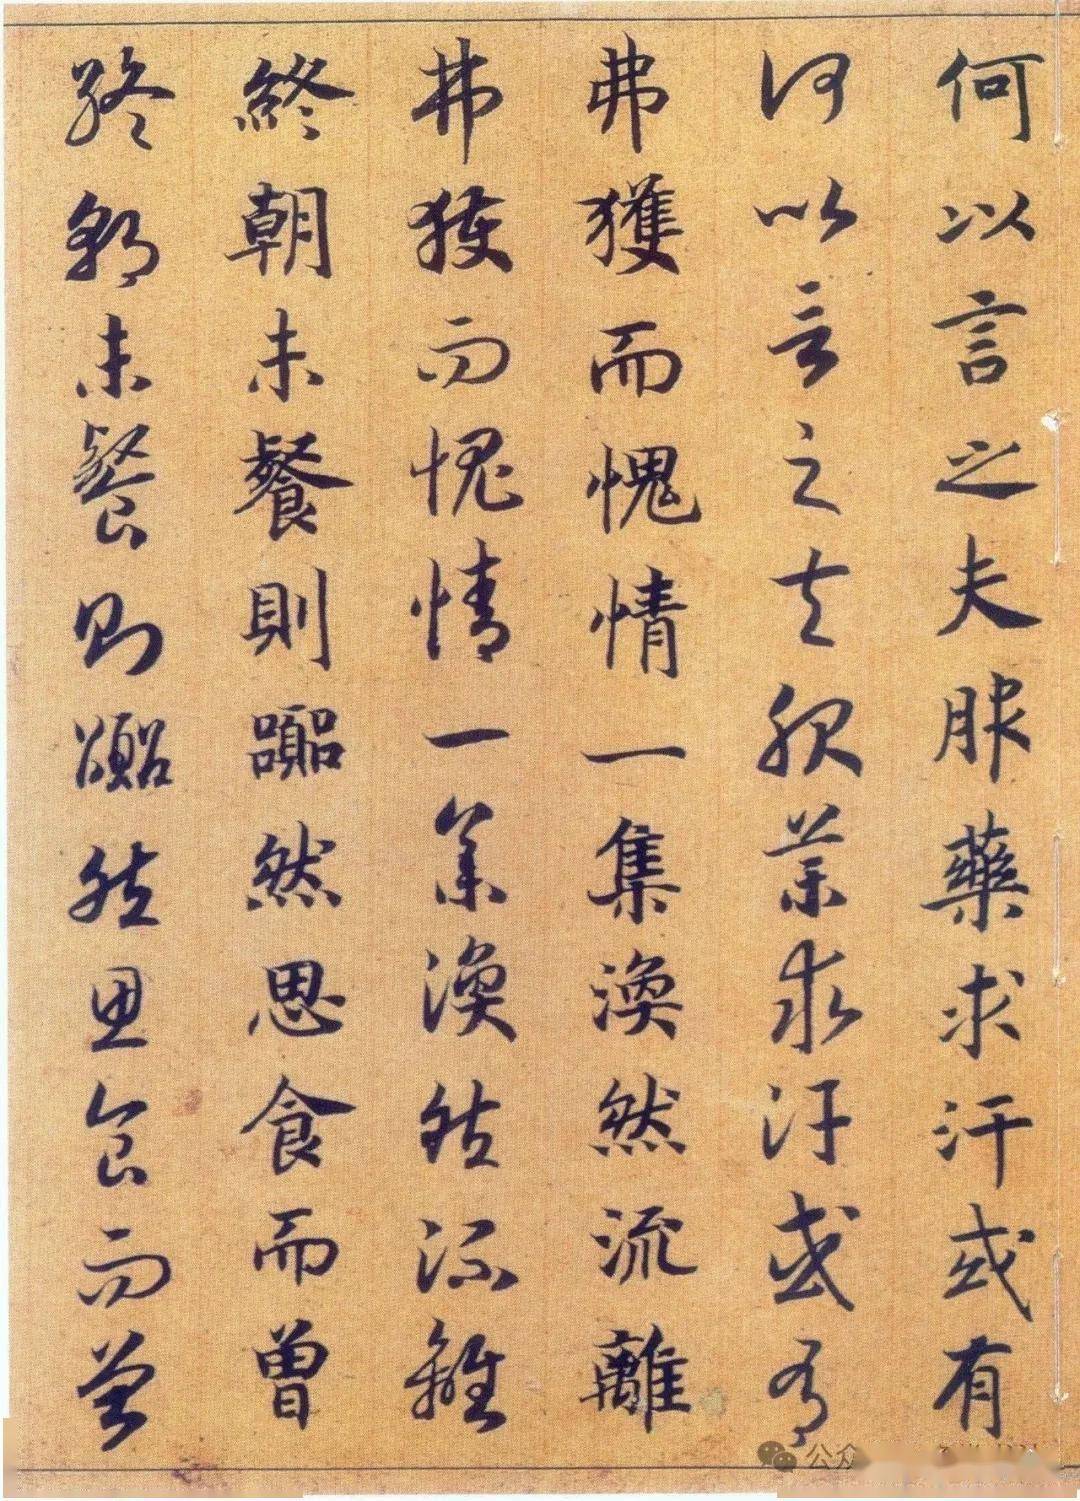 何以言之夫服藥求汗或有
何以言之夫服藥求汗或有
弗獲而愧情一集渙然流離
弗獲而愧情一集渙然流離
終朝未餐則囂然思食而曾
終朝未餐則囂然思食而曾
公众